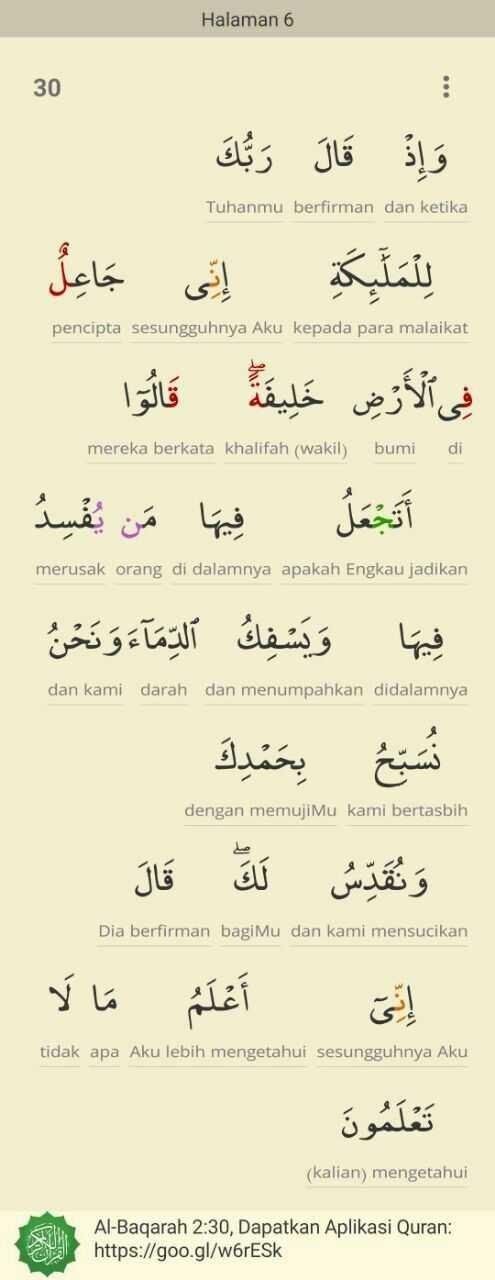 Halaman 6
30
وَإِذْ قَالَ رَبُّكَ
dan ketika berfirman Tuhanmu
لِلْمَلَٰٓئِكَةِ إِنِّى جَاعِلٌ
kepada para malaikat sesungguhnya Aku pencipta
فِى ٱلْأَرْضِ خَلِيفَةًۖ قَالُوٓا
di bumi khalifah (wakil) mereka berkata
أَتَجْعَلُ فِيهَا مَن يُفْسِدُ
apakah Engkau jadikan di dalamnya orang merusak
فِيهَا وَيَسْفِكُ ٱلدِّمَآءَ وَنَحْنُ
didalamnya dan menumpahkan darah dan kami
نُسَبِّحُ بِحَمْدِكَ
kami bertasbih dengan memujiMu
وَنُقَدِّسُ لَكَۖ قَالَ
dan kami mensucikan bagiMu Dia berfirman
إِنِّىٓ أَعْلَمُ مَا لَا
sesungguhnya Aku Aku lebih mengetahui apa tidak
تَعْلَمُونَ
(kalian) mengetahui
Al-Baqarah 2:30, Dapatkan Aplikasi Quran:
https://goo.gl/w6rESk